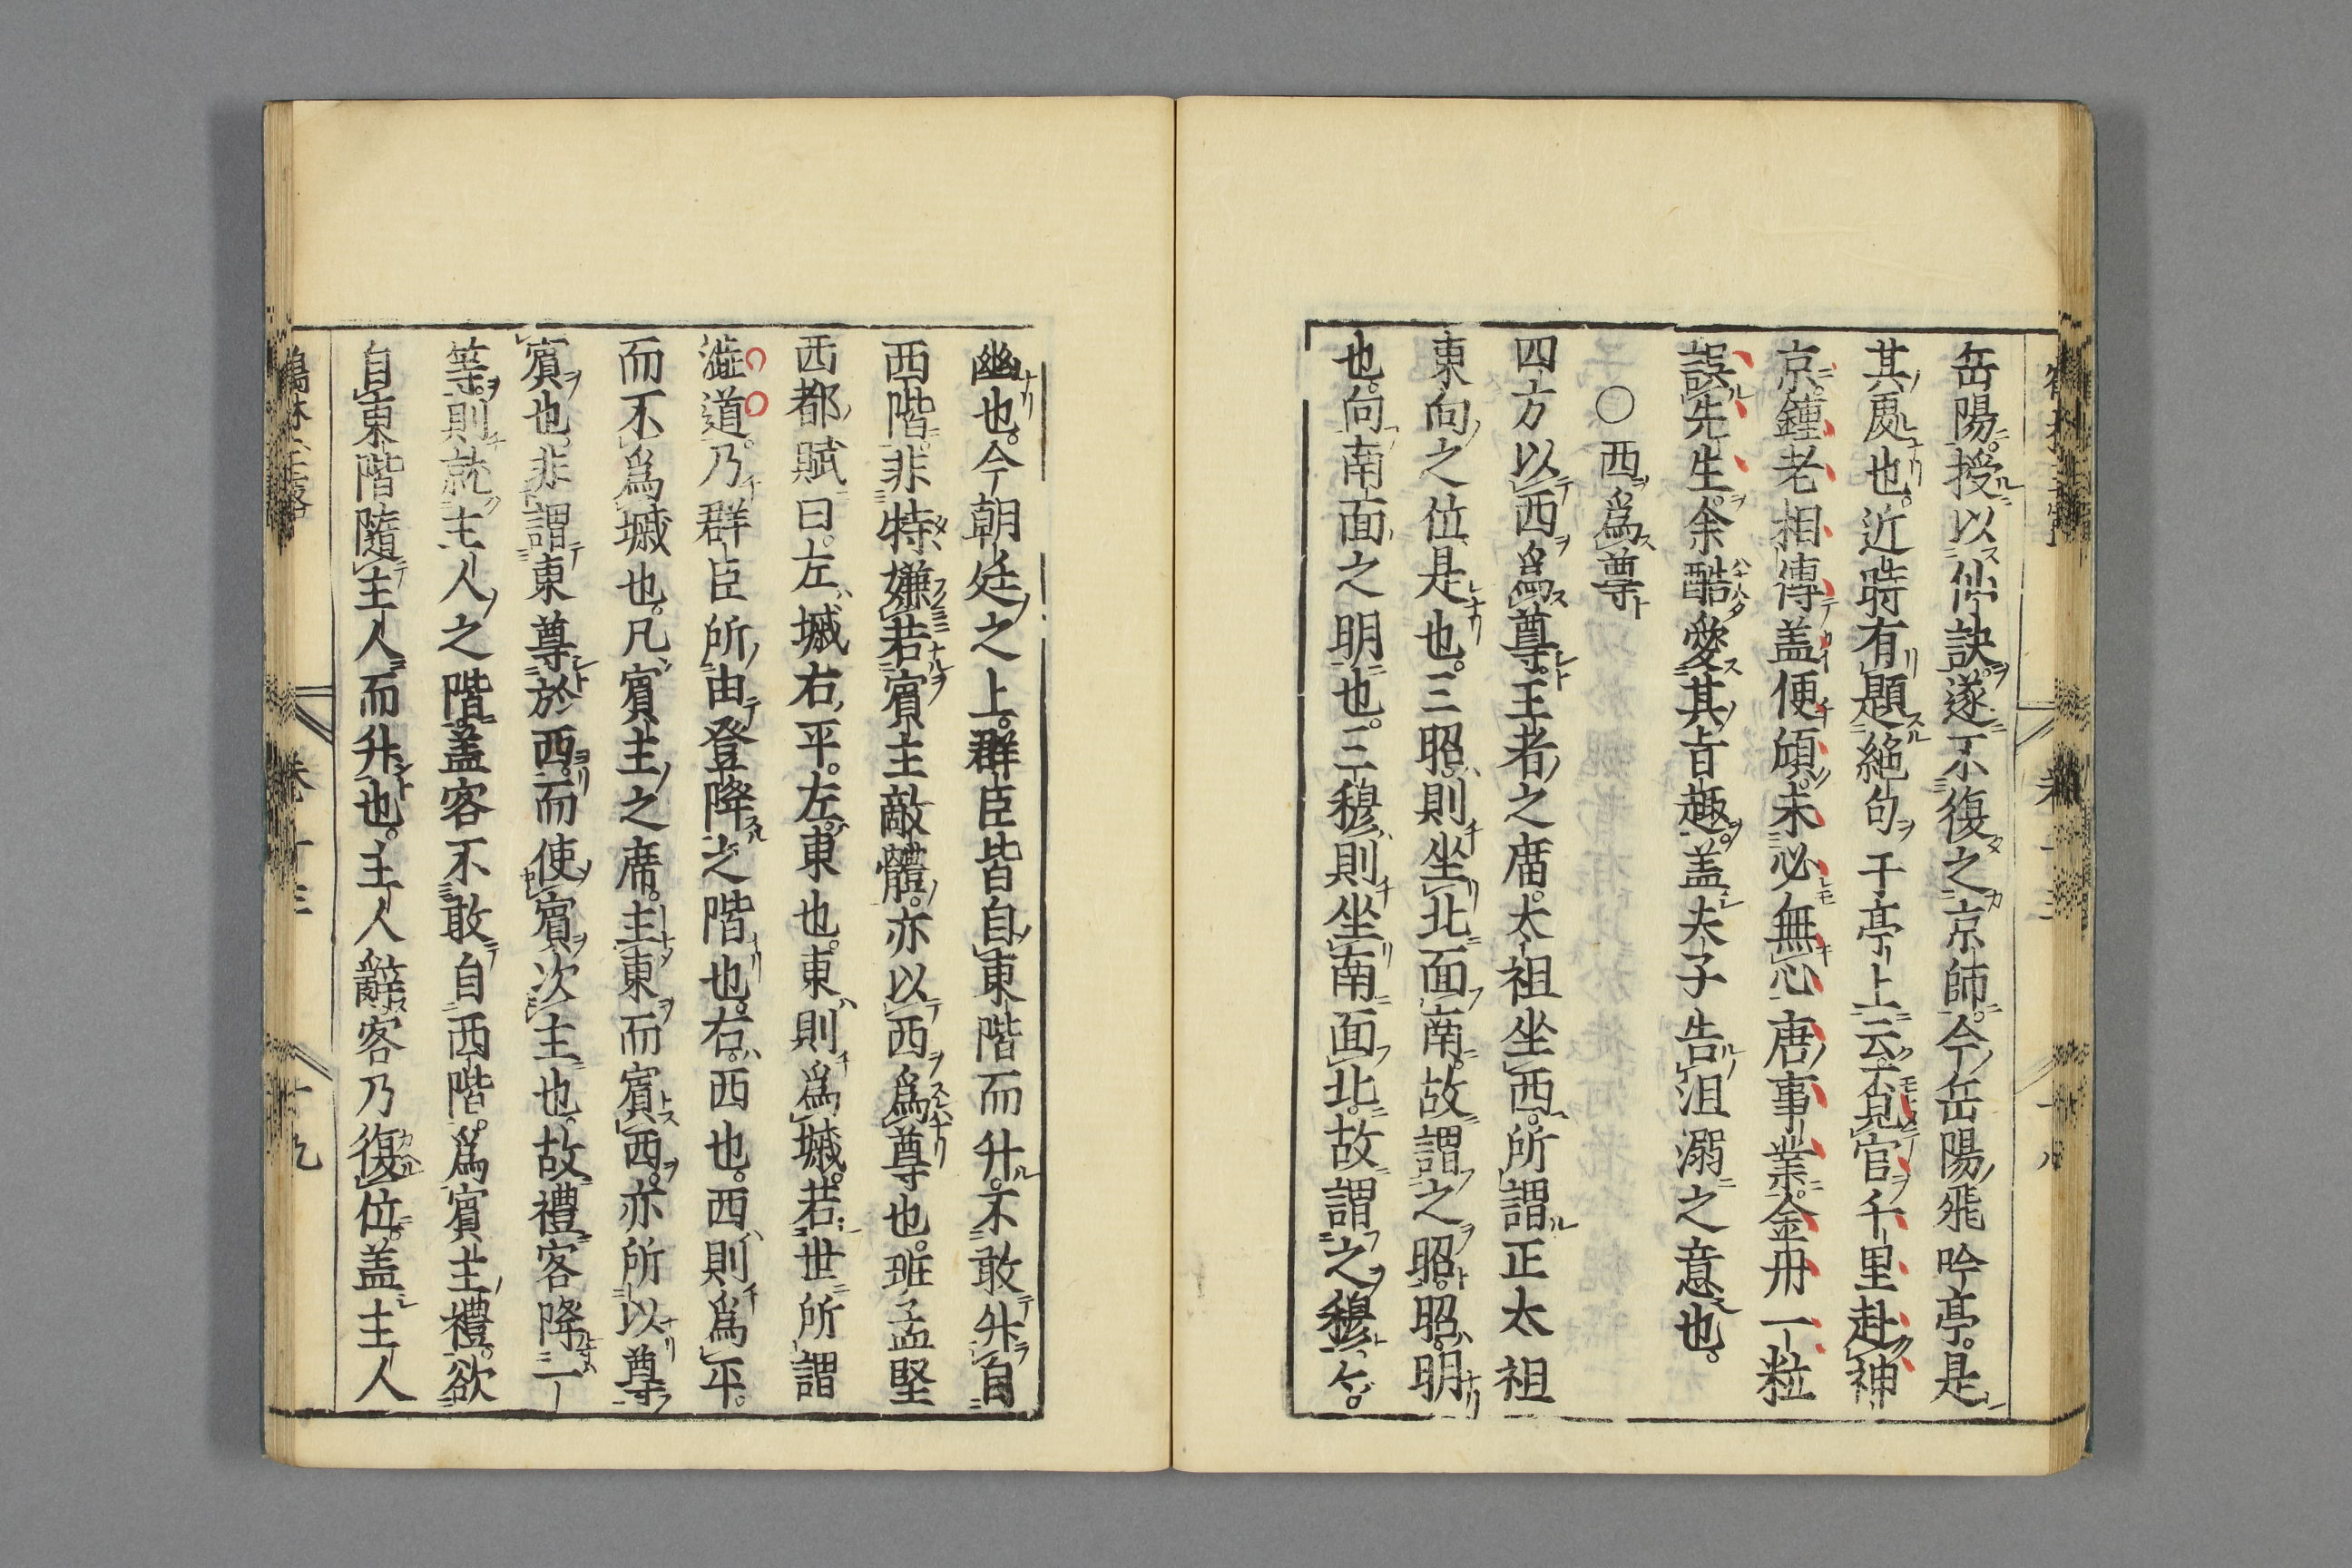 岳陽。授以仙訣。遂不復之京師。今岳陽飛吟亭。是
其處也。近時有題絕句于亭上云。覓官千里赴神
京。鍾老相傳蓋便傾。未必無心唐事業。金丹一粒
誤先生。余酷愛其旨趣。蓋夫子告沮溺之意也。
○西爲尊
四方以西爲尊。王者之席。太祖坐西。所謂正太祖
東向之位。是也。三昭則坐北面南。故謂之昭。昭明
也。向南面之明也。三穆則坐南面北。故謂之穆穆。
幽也。今朝廷之上。群臣皆自東階而升。不敢升自
西階。非特嫌若賓主敵體。亦以西爲尊也。班孟堅
西都賦曰。左墄右平。左東也。東則爲墄。若世所謂
澁道。乃群臣所由登降之階也。右西也。西則爲平。
而不爲墄也。凡賓主之席。主東而賓西。亦所以尊
賓也。非謂東尊於西。而使賓次主也。故禮客降一
等。則就主人之階。蓋客不敢自西階。爲賓主禮。欲
自東階隨主人而升也。主人辭客乃復位。蓋主人
卷十三 十九